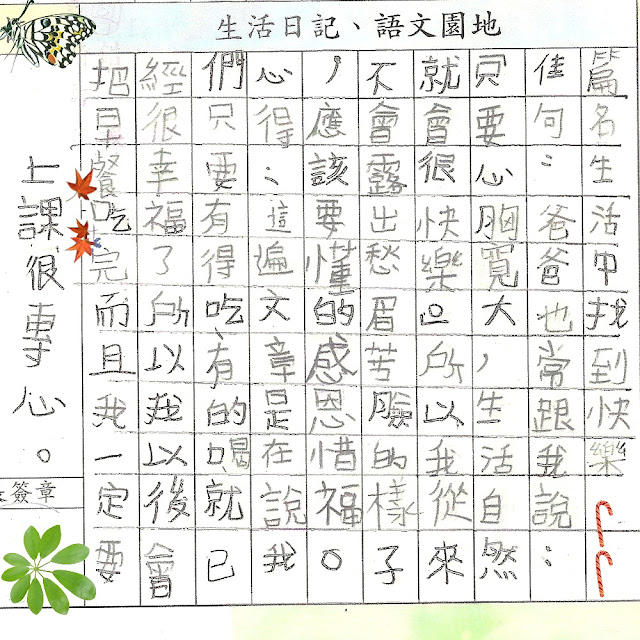 生活日記、語文園地
篇名生活中找到快樂
佳句：爸爸也常跟我說：
只要心胸寬大，生活自然
就會很快樂。所以我從來
不會露出愁眉苦臉的樣子
，應該要懂的感恩惜福。
心得：這遍文章是在說我
們只要有得吃有的喝就已
經很幸福了所以我以後會
把早餐吃完而且我一定要
上課很專心。
簽章